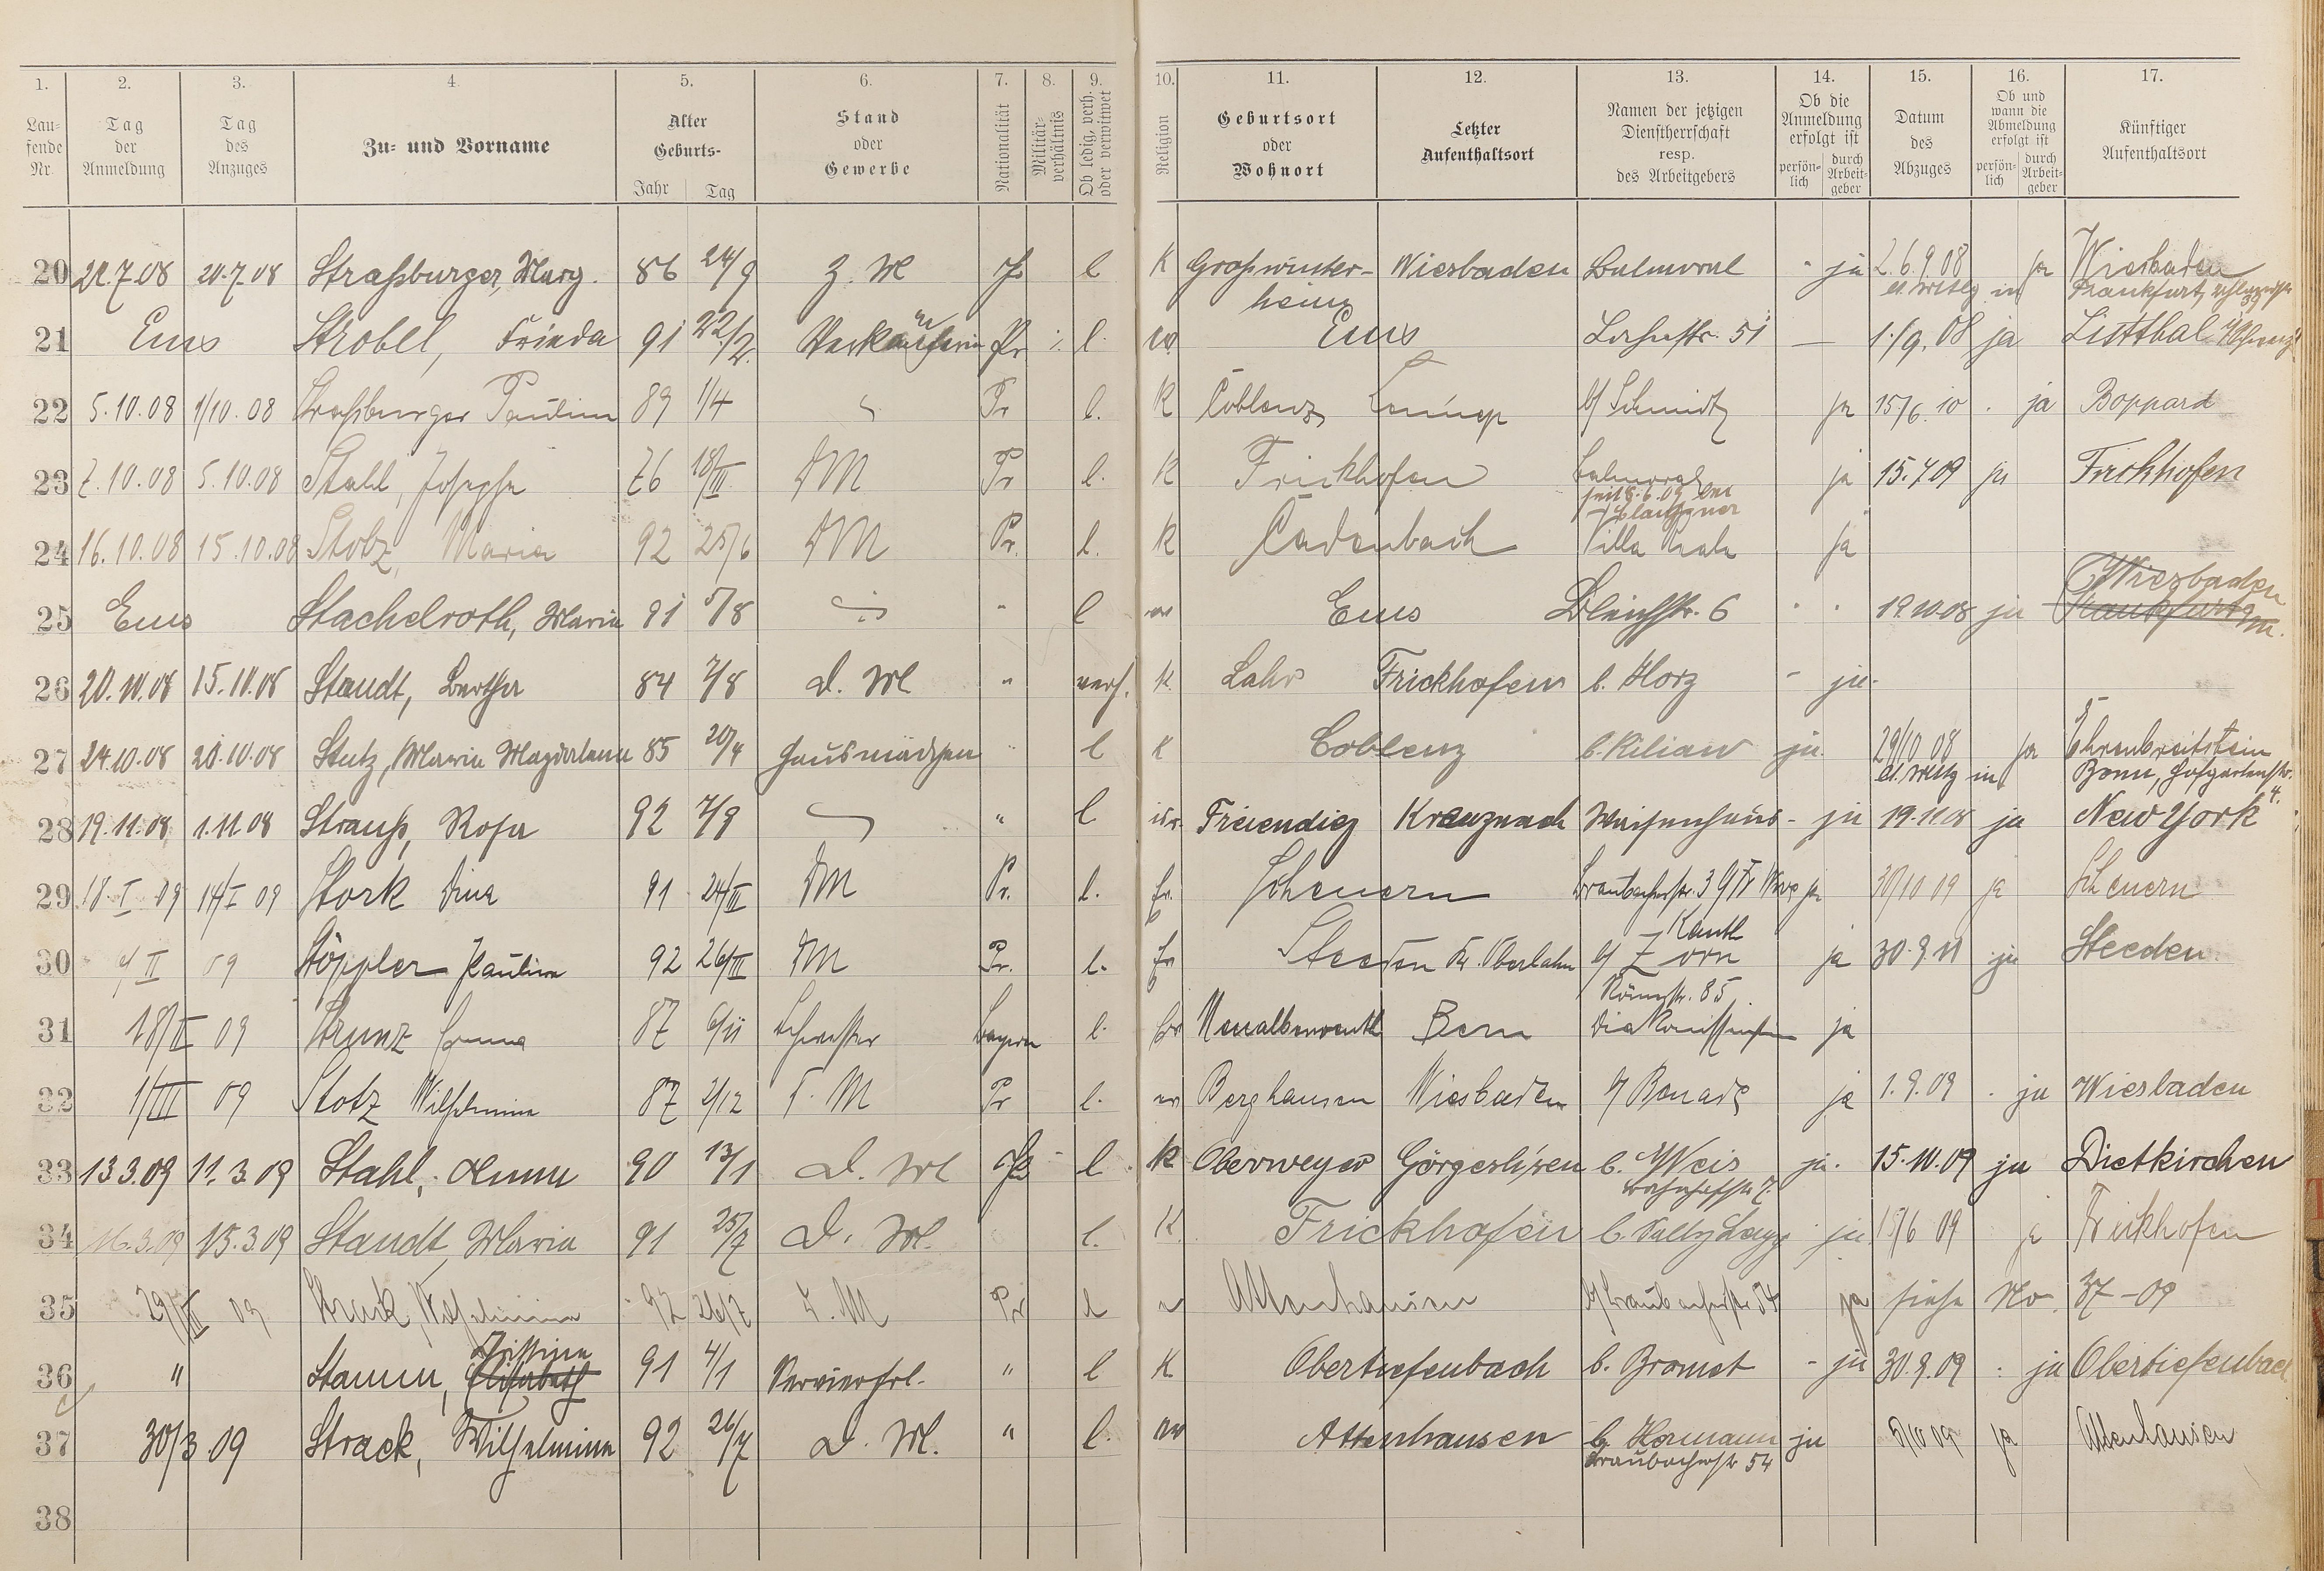 1. 2. 3. 4. 5. 6. 7. 8. 9. 10. 11. 12. 13. 14. 15. 16. 17.
Lau-
fende
Nr.
Tag
der
Anmeldung
Tag
des
Anzuges
Zu- und Vorname
Alter
Geburts-
Jahr Tag
Stand
oder
Gewerbe
Nationalität
Militär-
verhältnis
Ob ledig, verh.
oder verwitwet
Religion
Geburtsort
oder
Wohnort
Letzter
Aufenthaltsort
Namen der jetzigen
Dienstherrschaft
resp.
des Arbeitgebers
Ob die
Anmeldung
erfolgt ist
persön-
lich
durch
Arbeit-
geber
Datum
des
Abzuges
Ob und
wann die
Abmeldung
erfolgt ist
persön-
lich
durch
Arbeit-
geber
Künftiger
Aufenthaltsort
20 21.7.08 20.7.08 Straßburger, Marg. 86 24/9 Z. M Pr l K Großwinter- Wiesbaden Balmoral - ja 26.9.08 ja Wiesbaden
heim in Frankfurt
21 Ems Strobel, Frieda 91 22/2. Verkäuferin Pr l. ev. Ems Lahnstr. 51 — 1./9.08 ja Listthal
22 5.10.08 1/10.08 Straßburger Paulina 89 1/4 Pr l. K Coblenz Lennep b/ Schmidt ja 15/6.10 . ja Boppard
23 7.10.08 5.10.08 Stahl, Josepha 76 18/III DM Pr l. K Frickhofen Balmoral ja 15.7.09 ja Frickhofen
seit 8.6.09 bei
24 16.10.08 15.10.08 Stotz, Maria 92 25/6 DM Pr. l. K Cadenbach Villa ja
25 Ems Stachelroth, Maria 91 5/8 " l ev Ems Bleichstr. 6 " " 19.10.08 ja Frankfurt
Wiesbaden
26 20.10.08 15.10.08 Staudt, Bertha 84 7/8 D. M " verh. K. Lahr Frickhofen b. Horz - ja.
27 24.10.08 20.10.08 Stutz, Maria Magdalena 85 20/4 Hausmädchen " l K Coblenz b. Kilian ja. 29/10 08 ja Ehrenbreitstein
in Bonn, Hofgartenstr.
4.
28 19.11.08 1.11.08 Strauß, Rosa 92 7/9 " l isr. Freiendiez Kreuznach Waisenhaus - ja 19.11.08 ja New York
29 18.I 09 14/I 09 Stork Dina 91 24/III DM Pr. l. Ev. Scheuern Braubacherstr. 3 ja 30/10 09 ja Scheuern
30 4/II 09 Stöppler Paulina 92 26/III DM Pr. l. Ev Steeden Kr. Oberlahn b/ Zorn ja 30.9.11 ja Steeden
Römerstr. 85
31 18/II 09 Strunz 87 6/11 Schwester Bayern l. Ev Bern Diakonissenheim ja
32 1/III 09 Stotz Wilhelmina 87 2/12 D. M Pr l. ev Berghausen Wiesbaden b/ ja 1.9.09 . ja Wiesbaden
33 13.3.09 11.3.09 Stahl, Anna 90 13/1 D. M Pr l. K Oberweyer Görgeshsen b. Weis ja. 15.10.09 ja Dietkirchen
Bahnhofstr 7.
34 16.3.09 15.3.09 Staudt, Maria 91 25/7 D. M. l. K Frickhofen b. ja 15/6 09 ja Frickhofen
35 29/III 09 Strack, Wilhelmina 92 26/7 D. M Pr l ev Attenhausen b/ Braubacherstr 54 ja siehe No 37-09
36 " Stamm, Elisabeth 91 4/1 Servierfrl. " l K Obertiefenbach b. Bromet - ja 30.9.09 . ja Obertiefenbach
37 30/3.09 Strack, Wilhelmina 92 26/7 D. M. " l. ev Attenhausen b. Hermann ja 5/10 09 ja Attenhausen
Braubacherstr 54
38